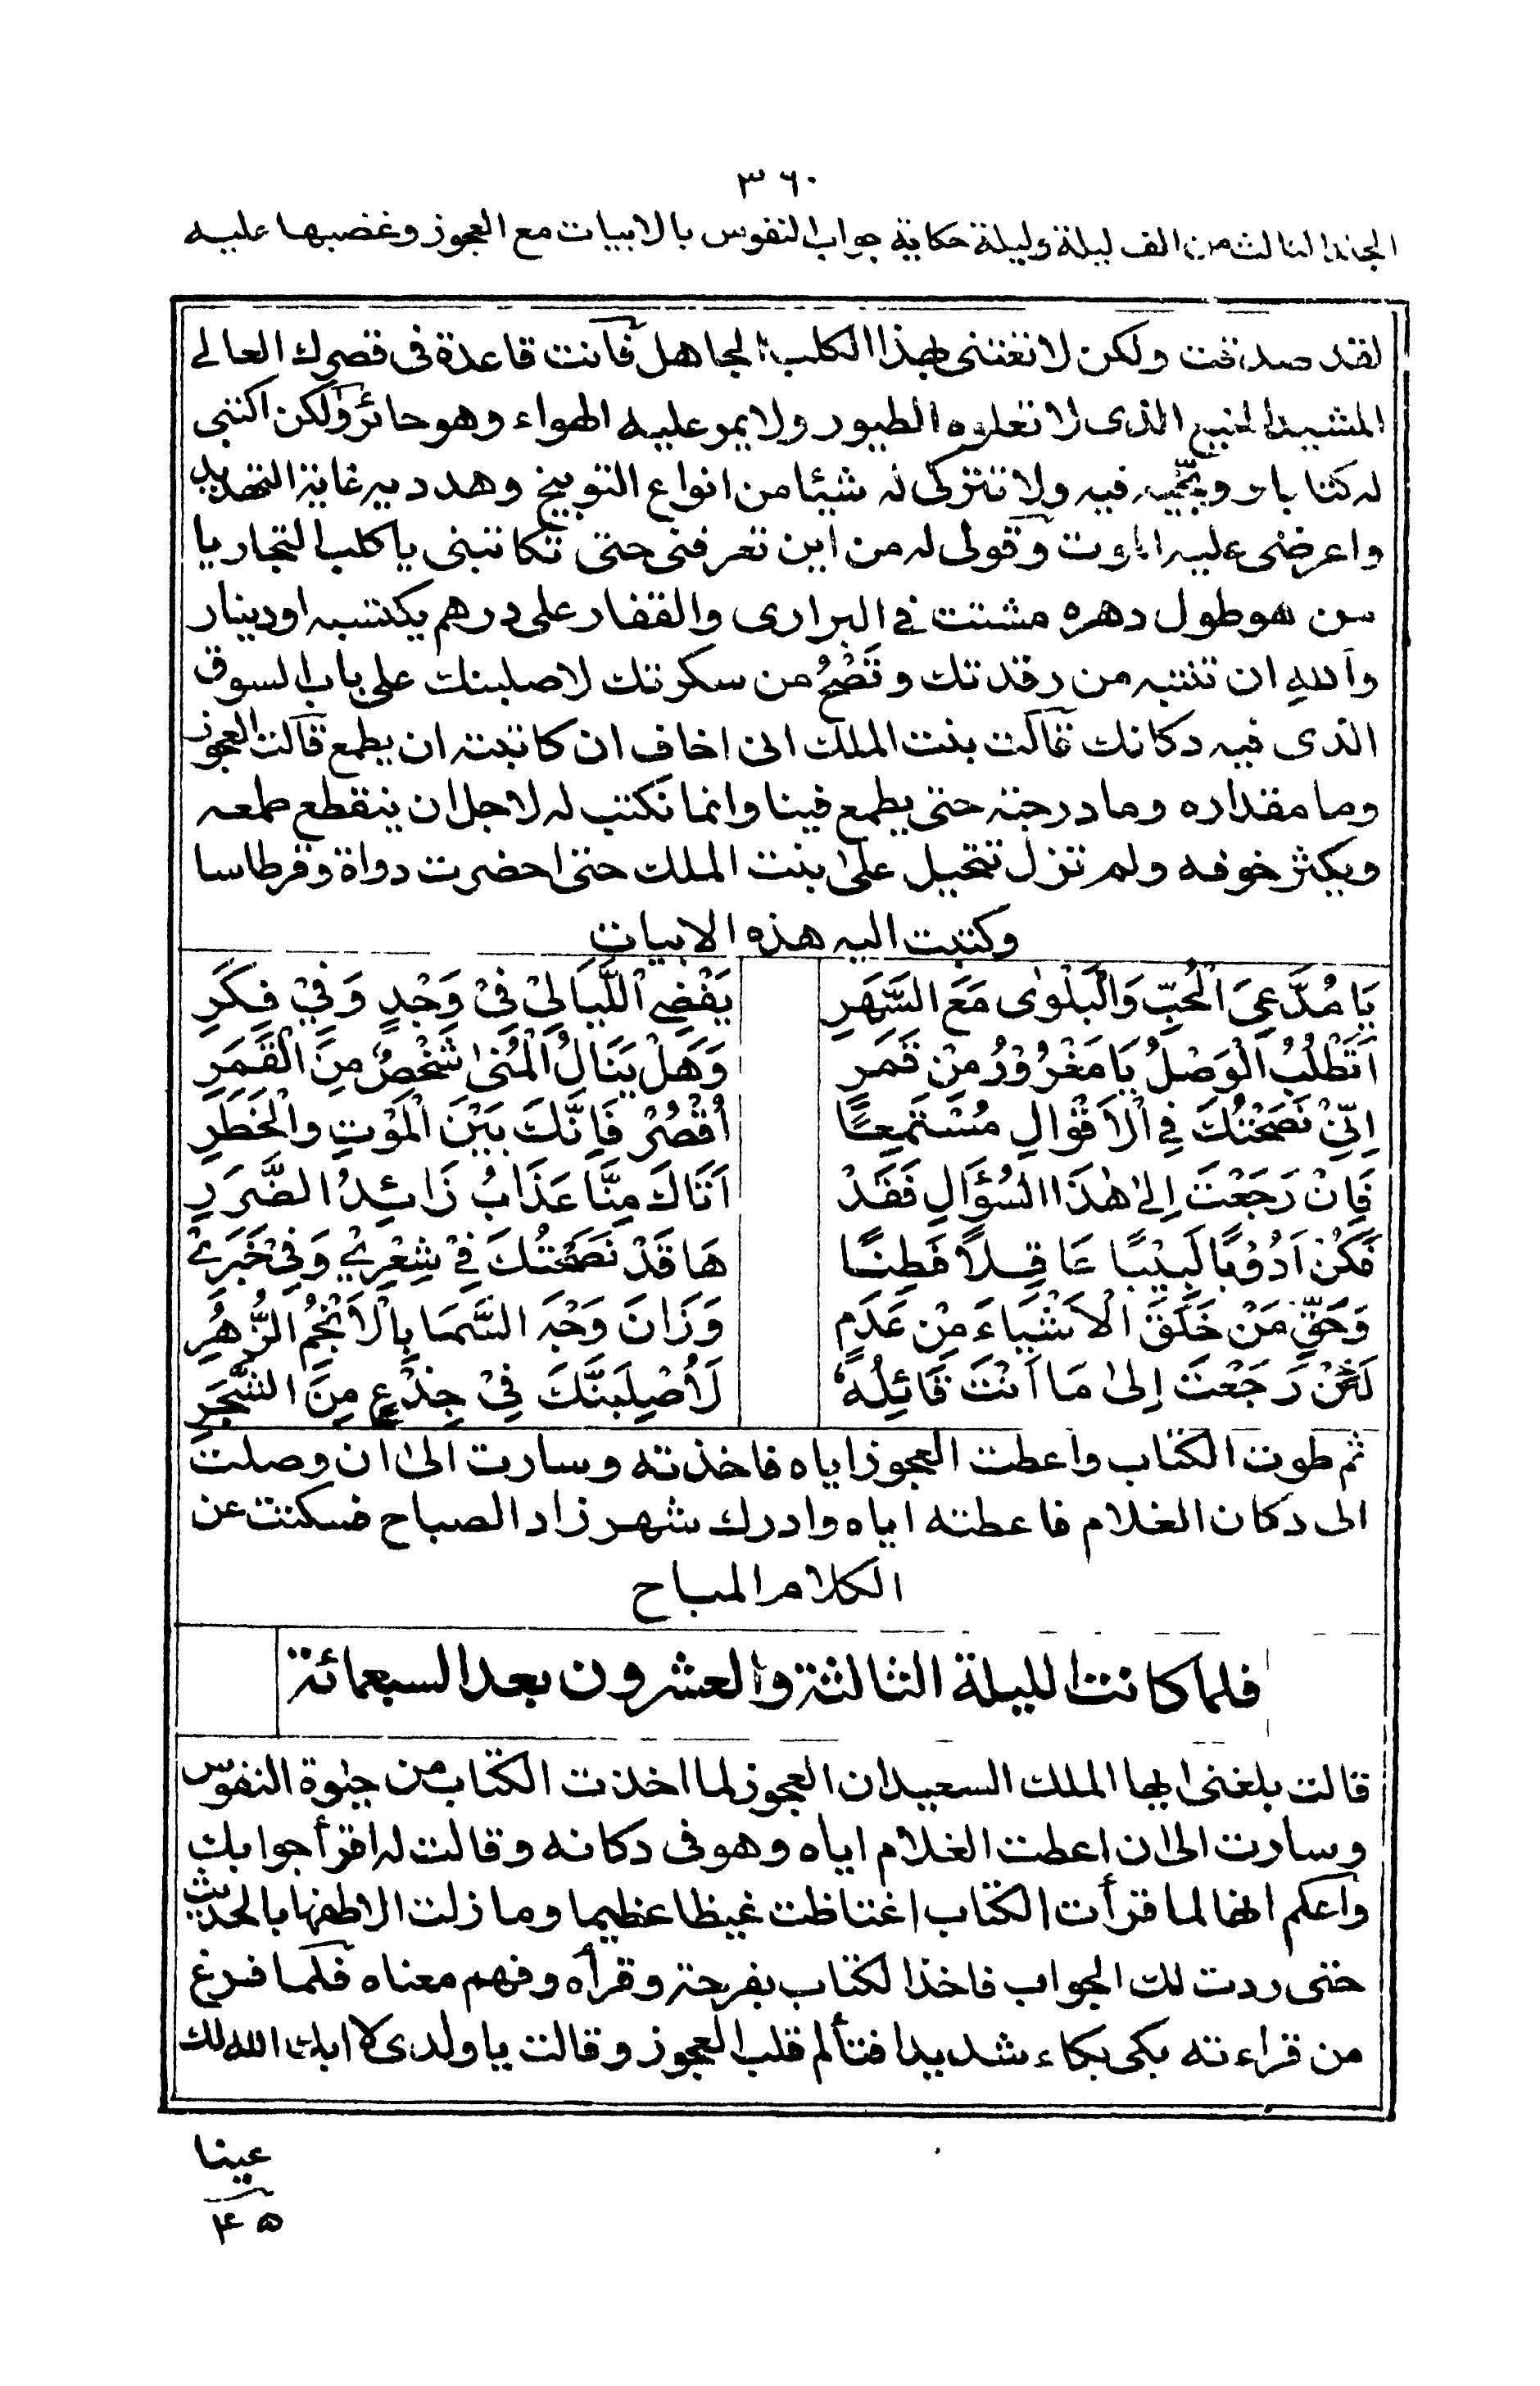 ٣٦٠
الجلد الثالث من الف ليلة وليلة حكاية جواب النفوس بالابيات مع العجوز وغضبها عليه
لقد صدقت ولكن لا تغتنى بهذا الكلب الجاهل فانت قاعدة فى قصرك العالے
المشيد المنيع الذى لا تعلوه الطيور ولا يمر عليه الهواء وهو حائر ولكن اكتبى
له كتابا و وبّخيه فيه ولا تتركى له شيئا من انواع التوبيخ وهدديه غاية التهديد
واعرضى عليه الموت وقولى له من اين تعرفنى حتى تكاتبنى ياكلب التجار يا
من هو طول دهره مشتت فے البرارى والقفار على درهم يكتسبه اودينار
والله ان تنتبه من رقدتك وتَصْحُ من سكرتك لاصلبنك على باب السوق
الذى فيه دكانك قالت بنت الملك انى اخاف ان كاتبته ان يطمع قالت العجوز
وما مقداره وما درجته حتى يطمع فينا وانما نكتب له لاجل ان ينقطع طمعه
ويكثر خوفه ولم تزل تتحيل علىٰ بنت الملك حتى احضرت دواة وقرطاسا
وكتبت اليه هذه الابيات
يَا مُدَّعِىَ الْحُبِّ وَالْبَلْوٰى مَعَ السَّهَرِ يَقْضِے اللَّيَالِيْ فِيْ وَجْدٍ وَفِيْ فِكَرِ
اَتَطْلُبُ الْوَصْلُ يَا مَغْرُوْرُ مِنْ قَمَرٍ وَهَلْ يَنَالُ الْمُنٰى شَخْصٌ مِنَ الْقَمَرِ
اِنِّيْ نَصَحْتُكَ فِے الْاَقْوَالِ مُسْتَمِعًا اُقْصُرْ فَاِنَّكَ بَيْنَ الْمَوْتِ والْخَطَرِ
فَاِنْ رَجَعْتَ اِلىٰ هٰذَا السُؤَالِ فَقَدْ اَتَاكَ مِنَّا عَذَابُ زَائِدُ الضَّرَرِ
فَكُنْ اَدُوْبًا لَبِيْبًا عَاقِلًا فَطِنًا هَا قَدْ نَصَحْتُكَ فِےْ شِعْرِيْ وَفِيْ خَبَرِيْ
وَحَقِّ مَنْ خَلَقَ الْاَشْيَاءَ مِنْ عَدَمٍ وَزَانَ وَجْهَ السَّمَا بِالْاَنْجُمِ الزُّهَرِ
لَئِنْ رَجَعْتَ اِلىٰ مَا اَنْتَ قَائِلُهُ لَاُصْلِبَنَّكَ فِيْ جِذْعٍ مِنَ الشَّجَرِ
ثم طوت الكتاب واعطت العجوز اياه فاخذته وسارت الىٰ ان وصلت
الى دكان الغلام فاعطته اياه وادرك شهر زاد الصباح فسكتت عن
الكلام المباح
فلما كانت الليلة الثالثة والعشرون بعد السبعمائة
قالت بلغنى ايها الملك السعيد ان العجوز لما اخذت الكتاب من حيٰوة النفوس
وسارت الىٰ ان اعطت الغلام اياه وهو فى دكانه وقالت له اقرأ جوابك
واعلم انها لما قرأت الكتاب اغتاظت غيظا عظيما وما زلت الاطفها بالحديث
حتى ردت لك الجواب فاخذ الكتاب بفرحة وقرأه وفهم معناه فلما فرغ
من قراءته بكى بكاء شديدا فتألم قلب العجوز وقالت يا ولدى لا ابكى الله لك
عينا
٤٥